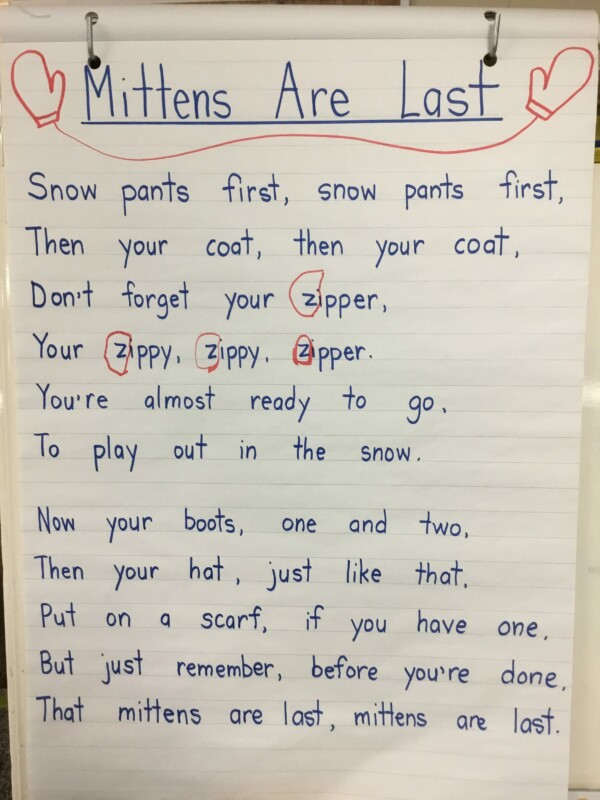 Mittens Are Last
Snow pants first, snow pants first,
Then your coat, then your coat,
Don't forget your zipper,
Your zippy, zippy, zipper.
You're almost ready to go,
To play out in the snow.
Now your boots, one and two,
Then your hat, just like that.
Put on a scarf, if you have one,
But just remember, before you're done,
That mittens are last, mittens are last.